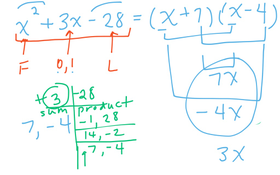 x² + 3x - 28 = (x + 7)(x - 4)
F O, I L
7x
-4x
3x
+ 3 | -28
sum | product
7, -4 | -1, 28
14, -2
7, -4